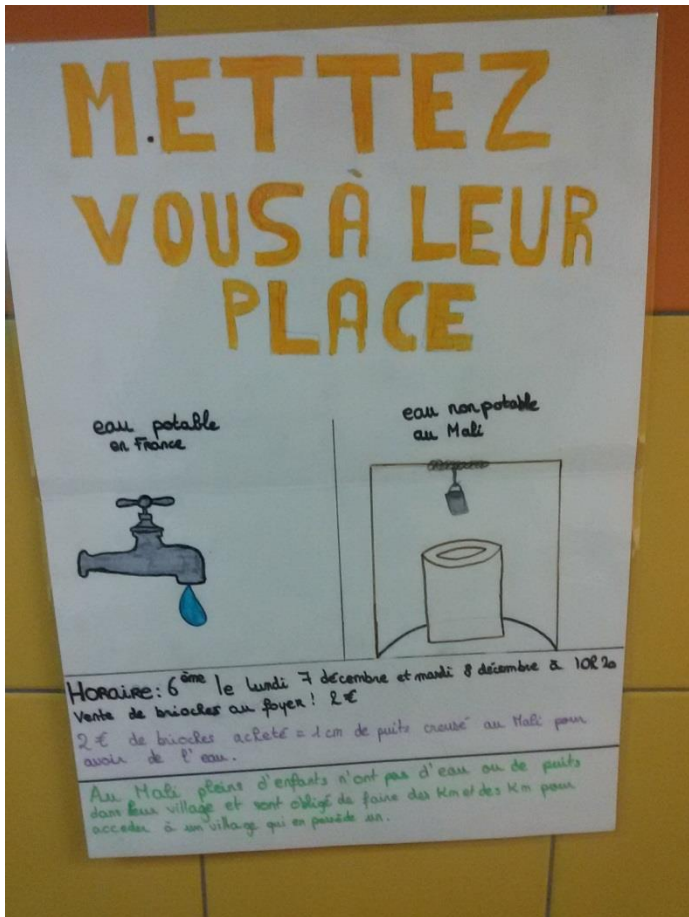 METTEZ
VOUS À LEUR
PLACE
eau potable
en France
eau non potable
au Mali
HORAIRE : 6ème le lundi 7 décembre et mardi 8 décembre à 10h20
Vente de brioches au foyer ! 2 €
2 € de brioches acheté = 1 cm de puits creusé au Mali pour
avoir de l'eau.
Au Mali pleins d'enfants n'ont pas d'eau ou de puits
dans leur village et sont obligé de faire des Km et des Km pour
acceder à un village qui en possède un.